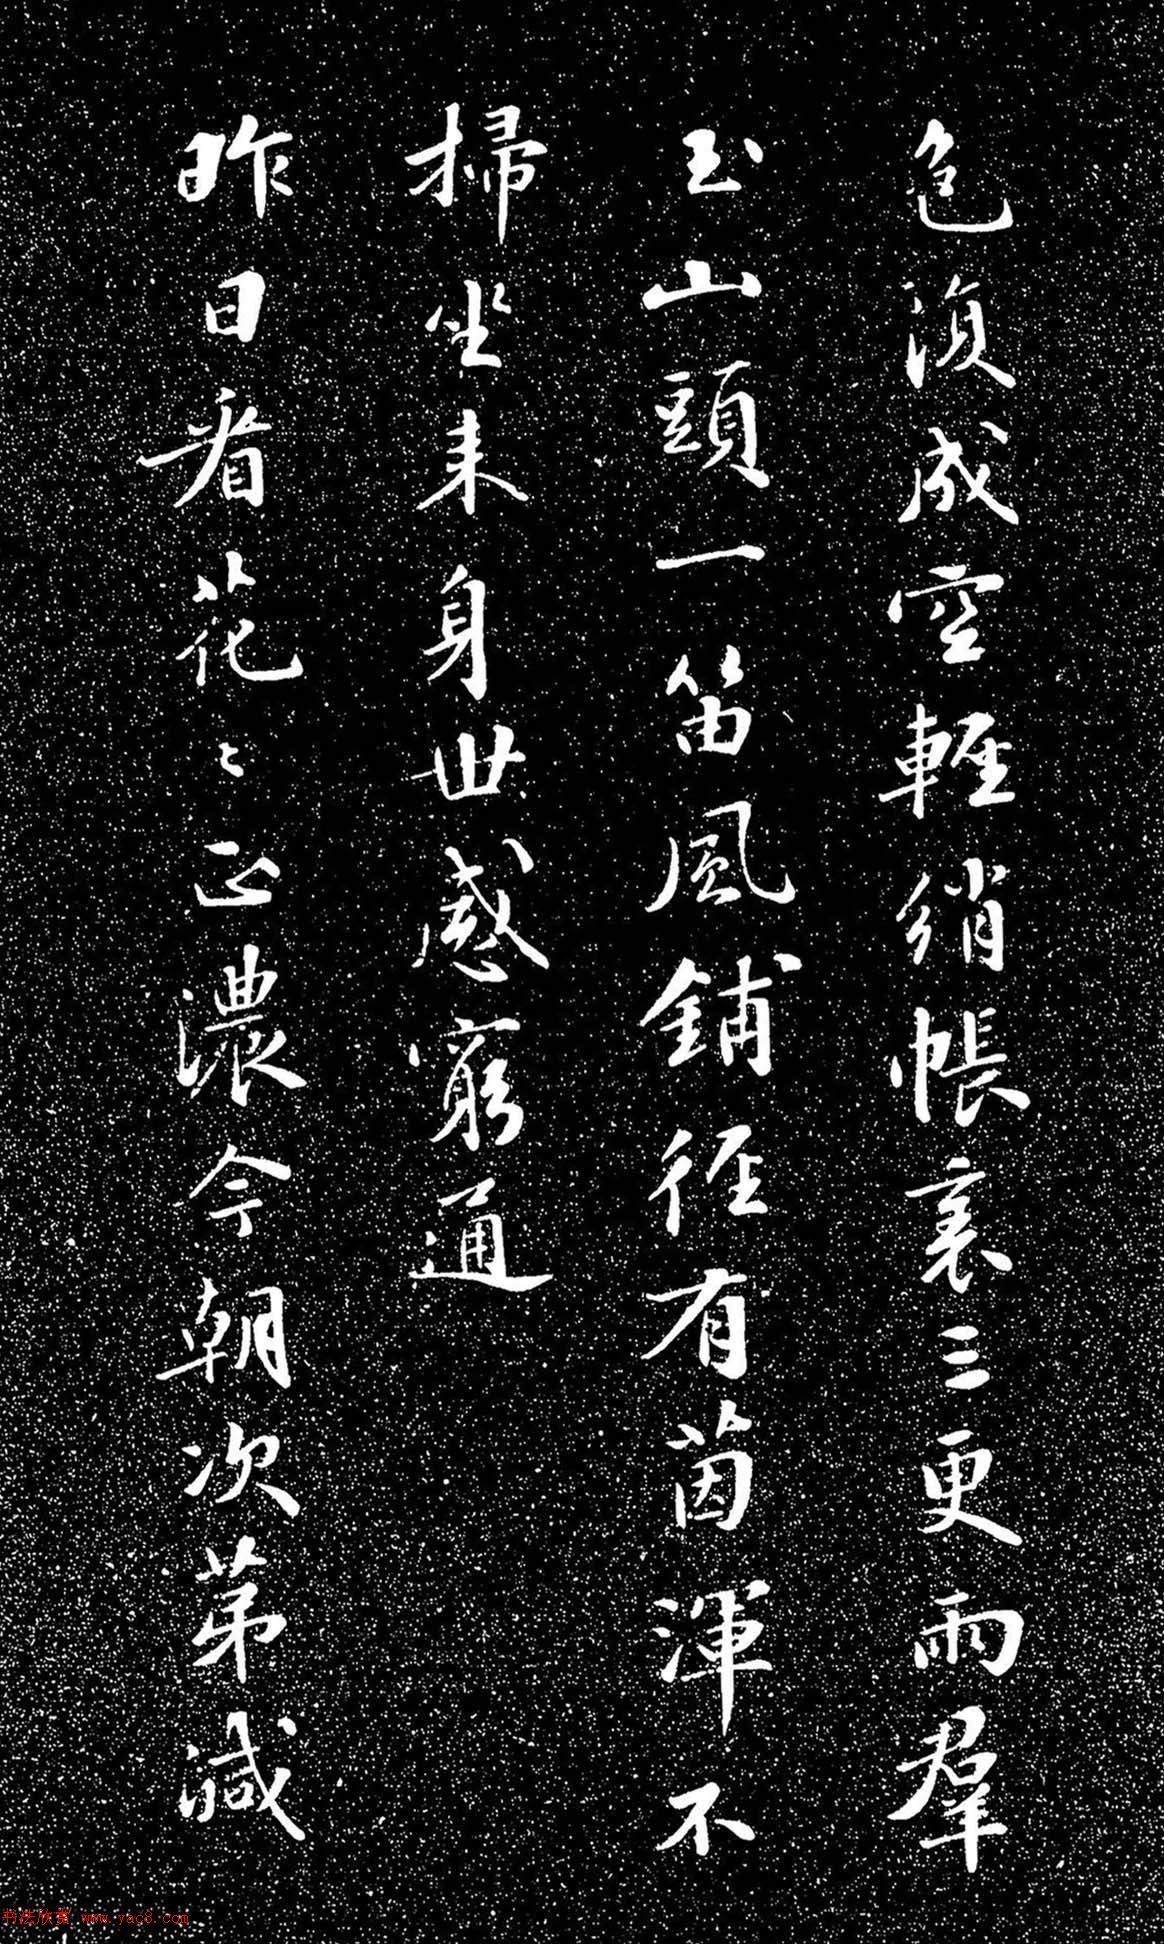 色須成空輕綃帳裏三更雨羣
玉山頭一笛風鋪徑有茵渾不
掃坐来身世感窮通
昨日看花〻正濃今朝次苐減
书法欣赏 www.yac8.com